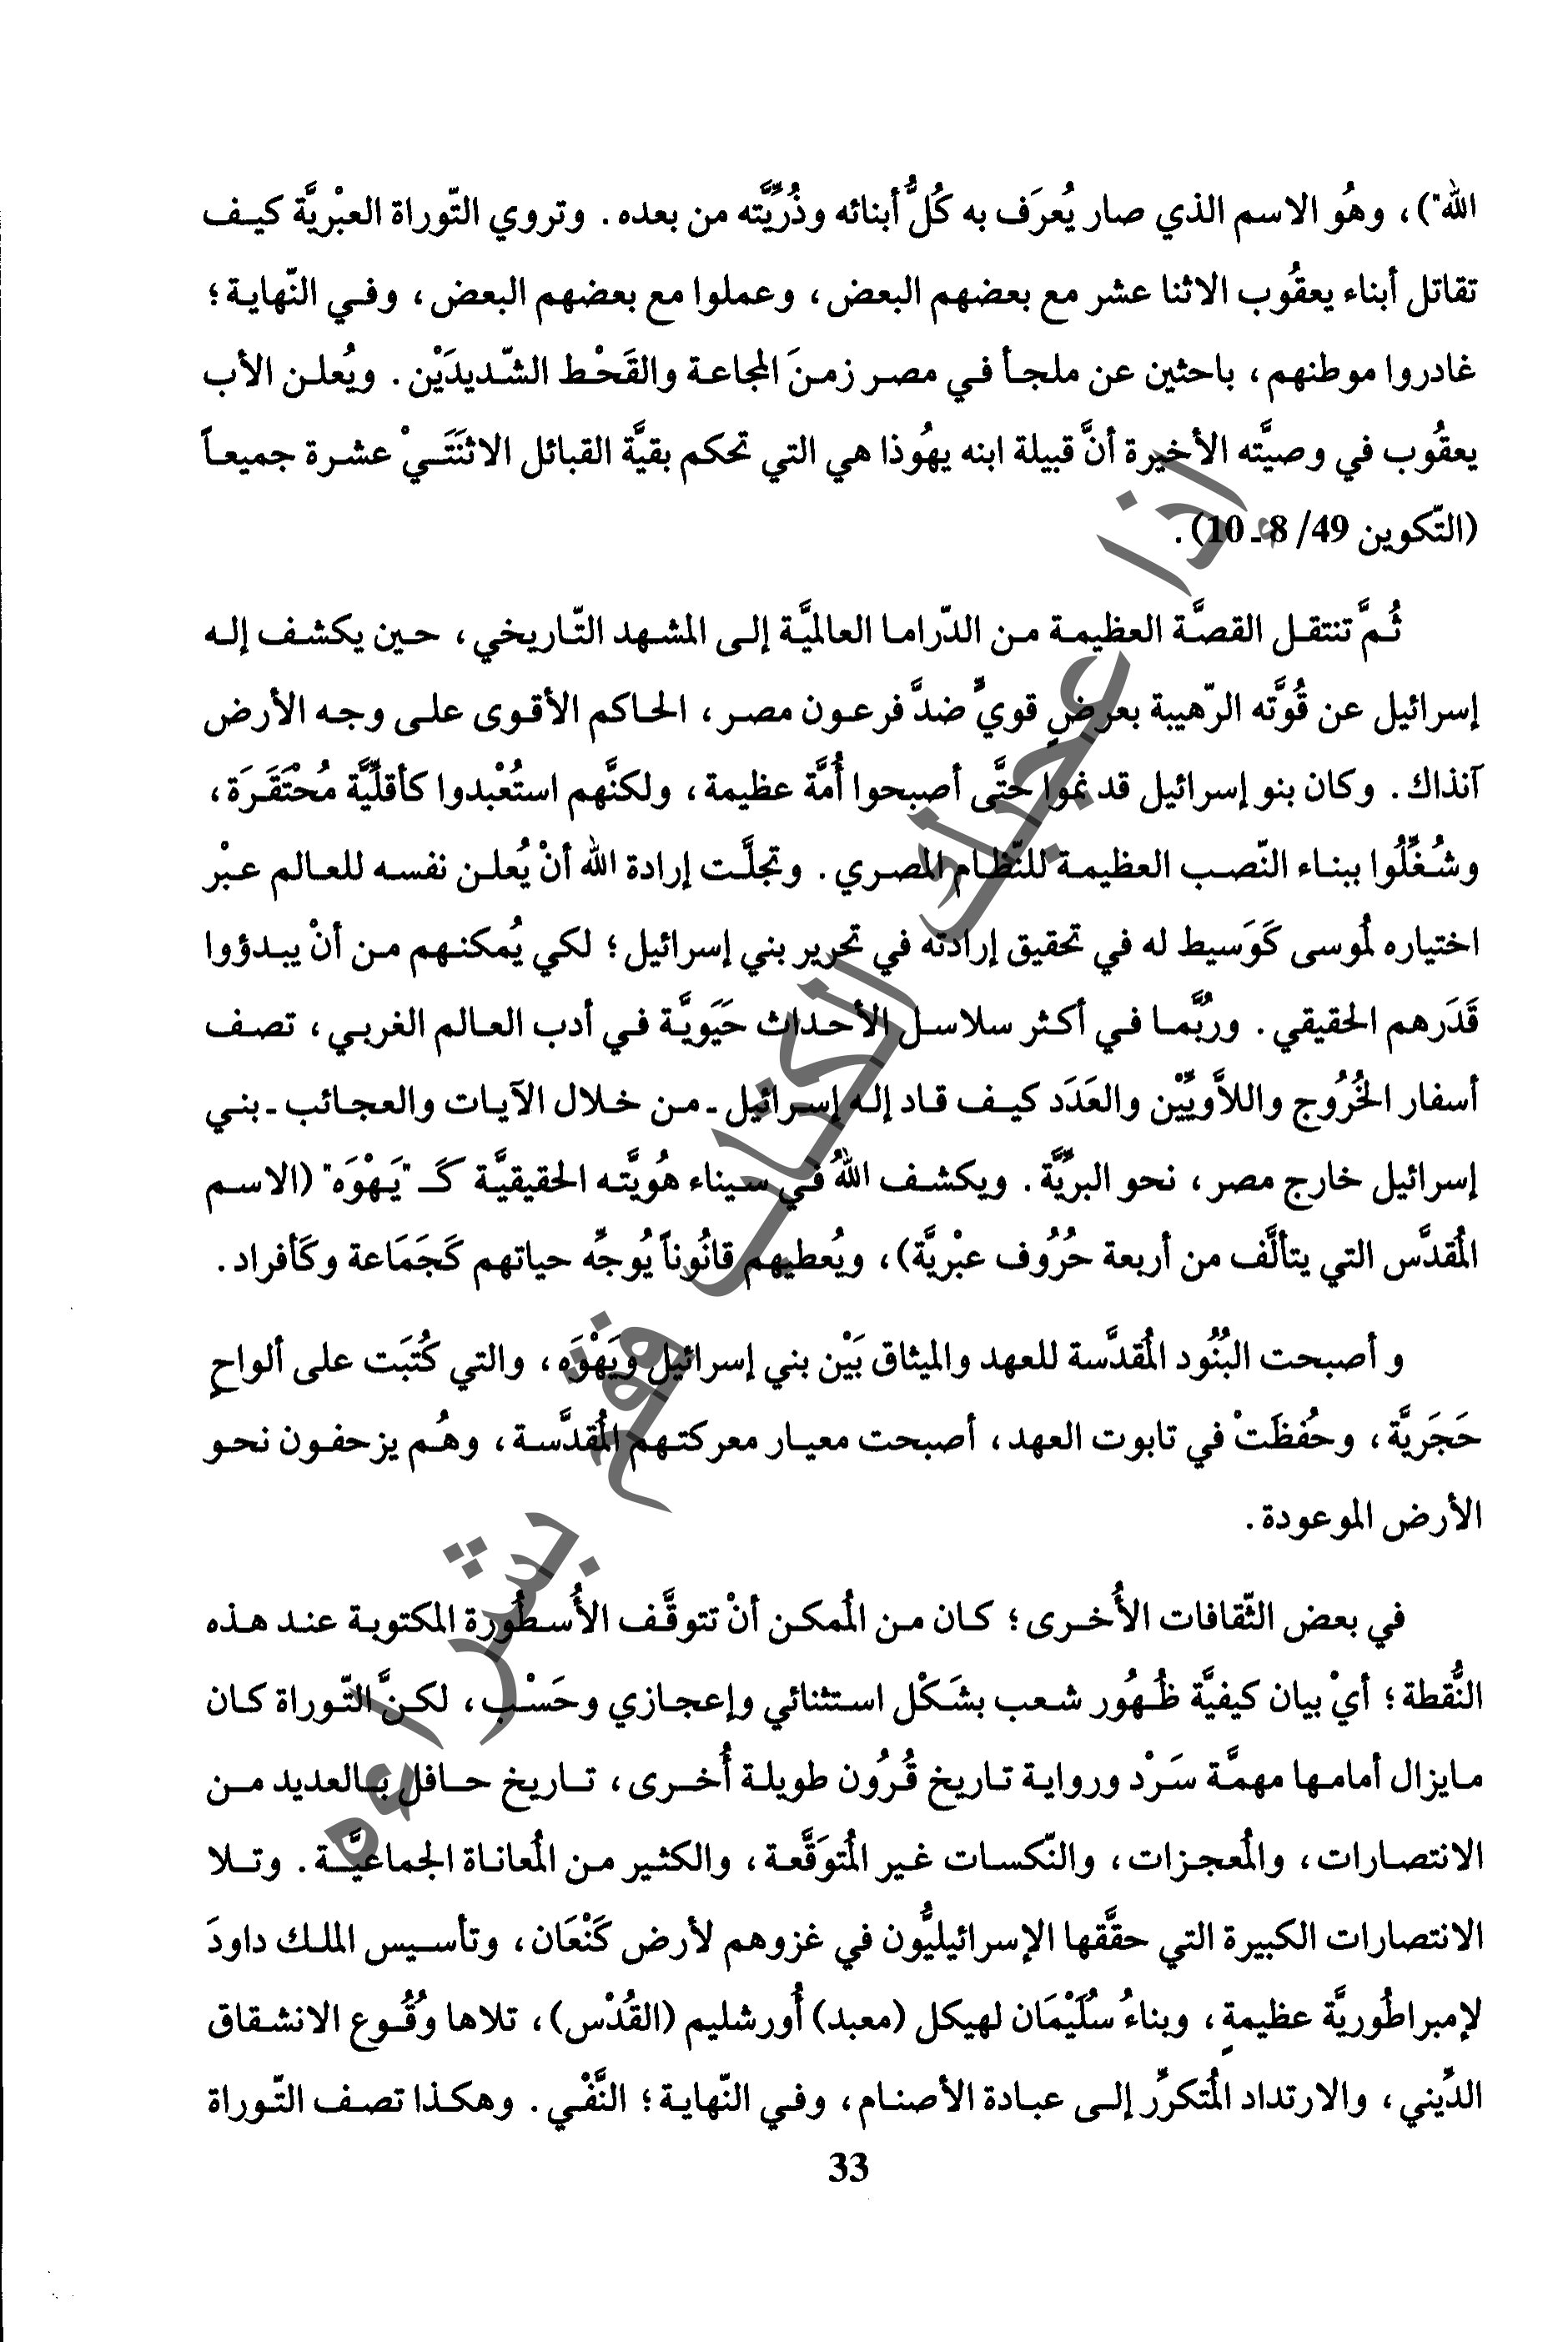 الله")، وهُو الاسم الذي صار يُعرَف به كُلُّ أبنائه وذُرِّيَّته من بعده. وتروي التّوراة العبْريَّة كيف
تقاتل أبناء يعقُوب الاثنا عشر مع بعضهم البعض، وعملوا مع بعضهم البعض، وفي النّهاية؛
غادروا موطنهم، باحثين عن ملجأ في مصر زمنَ المجاعة والقَحْط الشّديدَيْن. ويُعلن الأب
يعقُوب في وصيَّته الأخيرة أنَّ قبيلة ابنه يهُوذا هي التي تحكم بقيَّة القبائل الاثنَتَيْ عشرة جميعاً
(التّكوين 49/ 8 ـ 10).
ثُمَّ تنتقل القصَّة العظيمة من الدّراما العالميَّة إلى المشهد التّاريخي، حين يكشف إله
إسرائيل عن قُوَّته الرّهيبة بعرضٍ قويٍّ ضدَّ فرعون مصر، الحاكم الأقوى على وجه الأرض
آنذاك. وكان بنو إسرائيل قد نموا حتَّى أصبحوا أُمَّة عظيمة، ولكنَّهم استُعْبدوا كأقلِّيَّة مُحْتَقَرَة،
وشُغِّلُوا ببناء النّصب العظيمة للنّظام المصري. وتجلَّت إرادة الله أنْ يُعلن نفسه للعالم عبْر
اختياره لمُوسى كَوَسيط له في تحقيق إرادته في تحرير بني إسرائيل؛ لكي يُمكنهم من أنْ يبدؤوا
قَدَرهم الحقيقي. ورُبَّما في أكثر سلاسل الأحداث حَيَويَّة في أدب العالم الغربي، تصف
أسفار الخُرُوج واللاَّويِّيْن والعَدَد كيف قاد إله إسرائيل ـ من خلال الآيات والعجائب ـ بني
إسرائيل خارج مصر، نحو البرِّيَّة. ويكشف اللهُ في سيناء هُويَّته الحقيقيَّة كَـ "يَهْوَه" (الاسم
المُقدَّس التي يتألَّف من أربعة حُرُوف عبْريَّة)، ويُعطيهم قانُوناً يُوجِّه حياتهم كَجَمَاعة وكَأفراد.
و أصبحت البُنُود المُقدَّسة للعهد والميثاق بَيْن بني إسرائيل ويَهْوَه، والتي كُتبَت على ألواحٍ
حَجَريَّة، وحُفظَتْ في تابوت العهد، أصبحت معيار معركتهم المُقدَّسة، وهُم يزحفون نحو
الأرض الموعودة.
في بعض الثّقافات الأُخرى؛ كان من المُمكن أنْ تتوقَّف الأُسطُورة المكتوبة عند هذه
النُّقطة؛ أيْ بيان كيفيَّة ظُهُور شعب بشَكْل استثنائي وإعجازي وحَسْب، لكنَّ التّوراة كان
مايزال أمامها مهمَّة سَرْد ورواية تاريخ قُرُون طويلة أُخرى، تاريخ حافل بالعديد من
الانتصارات، والمُعجزات، والنّكسات غير المُتوَقَّعة، والكثير من المُعاناة الجماعيَّة. وتلا
الانتصارات الكبيرة التي حقَّقها الإسرائيليُّون في غزوهم لأرض كَنْعَان، وتأسيس الملك داودَ
لإمبراطُوريَّة عظيمةٍ، وبناءُ سُلَيْمَان لهيكل (معبد) أُورشليم (القُدْس)، تلاها وُقُوع الانشقاق
الدِّيني، والارتداد المُتكرِّر إلى عبادة الأصنام، وفي النّهاية؛ النَّفْي. وهكذا تصف التّوراة
33
إذا عجبك الكتاب قم بشراءه